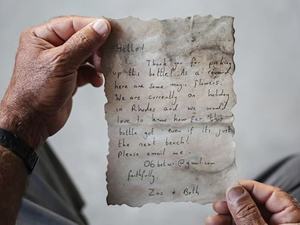 Hello!
Thank you for picking
up this bottle! As a reward
here are some magic flowers.
We are currently on holiday
in Rhodes and we would
love to know how far this
bottle got even if it's just
the next beach!
Please email me..
@gmail.com
faithfully,
Zac + Beth